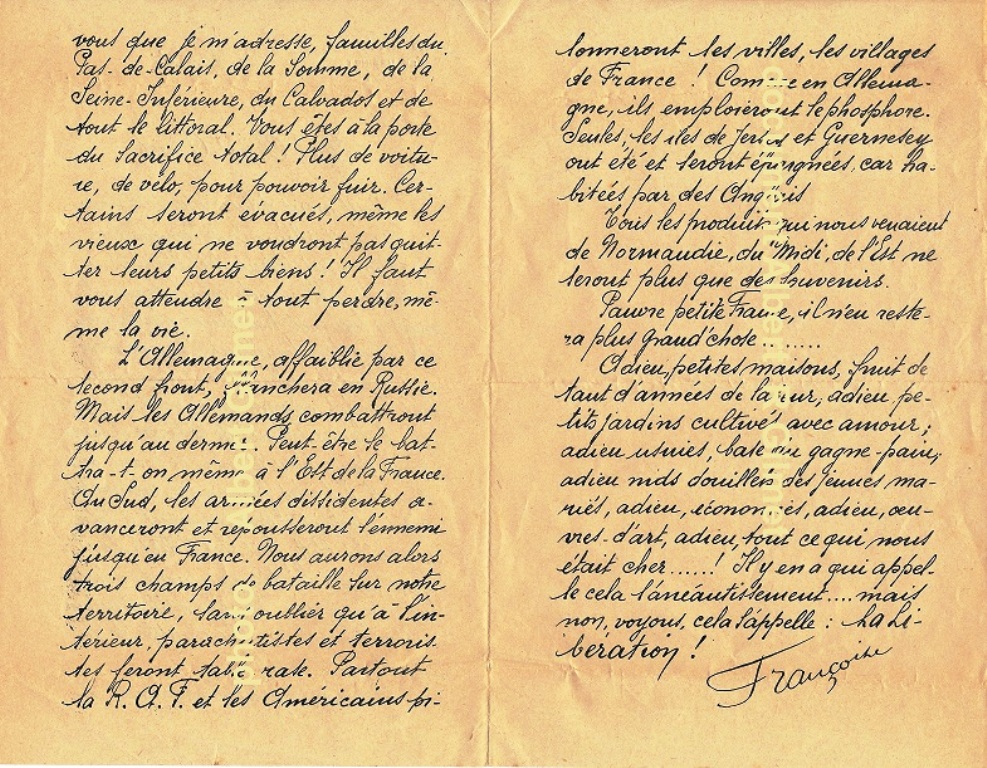 vous que je m'adresse, familles du
Pas-de-Calais, de la Somme, de la
Seine-Inférieure, du Calvados et de
tout le littoral. Vous êtes à la porte
du sacrifice total ! Plus de voitu-
re, de vélo, pour pouvoir fuir. Cer-
tains seront évacués, même les
vieux qui ne voudront pas quit-
ter leurs petits biens ! Il faut
vous attendre à tout perdre, mê-
me la vie.
L'Allemagne, affaiblie par ce
second front, flanchera en Russie.
Mais les Allemands combattront
jusqu'au dernier. Peut-être se bat-
tra-t-on même à l'Est de la France.
Au Sud, les armées dissidentes a-
vanceront et repousseront l'ennemi
jusqu'en France. Nous aurons alors
trois champs de bataille sur notre
territoire, sans oublier qu'à l'in-
térieur, parachutistes et terroris-
tes feront table rase. Partout
la R.A.F. et les Américains pi-
lonneront les villes, les villages
de France ! Comme en Allema-
gne, ils emploieront le phosphore.
Seules, les îles de Jersey et Guernesey
ont été et seront épargnées, car ha-
bitées par des Anglais
Tous les produits qui nous venaient
de Normandie, du Midi, de l'Est ne
seront plus que des souvenirs.
Pauvre petite France, il n'en reste-
ra plus grand'chose........
Adieu, petites maisons, fruit de
tant d'années de labeur; adieu, pe-
tits jardins cultivés avec amour;
adieu usines, base du gagne-pain;
adieu nids douillets des jeunes ma-
riés, adieu, économies, adieu, œu-
vres-d'art, adieu, tout ce qui nous
était cher......! Il y en a qui appel-
le cela l'anéantissement.... mais
non, voyons, cela s'appelle : La Li-
bération !
Françoise